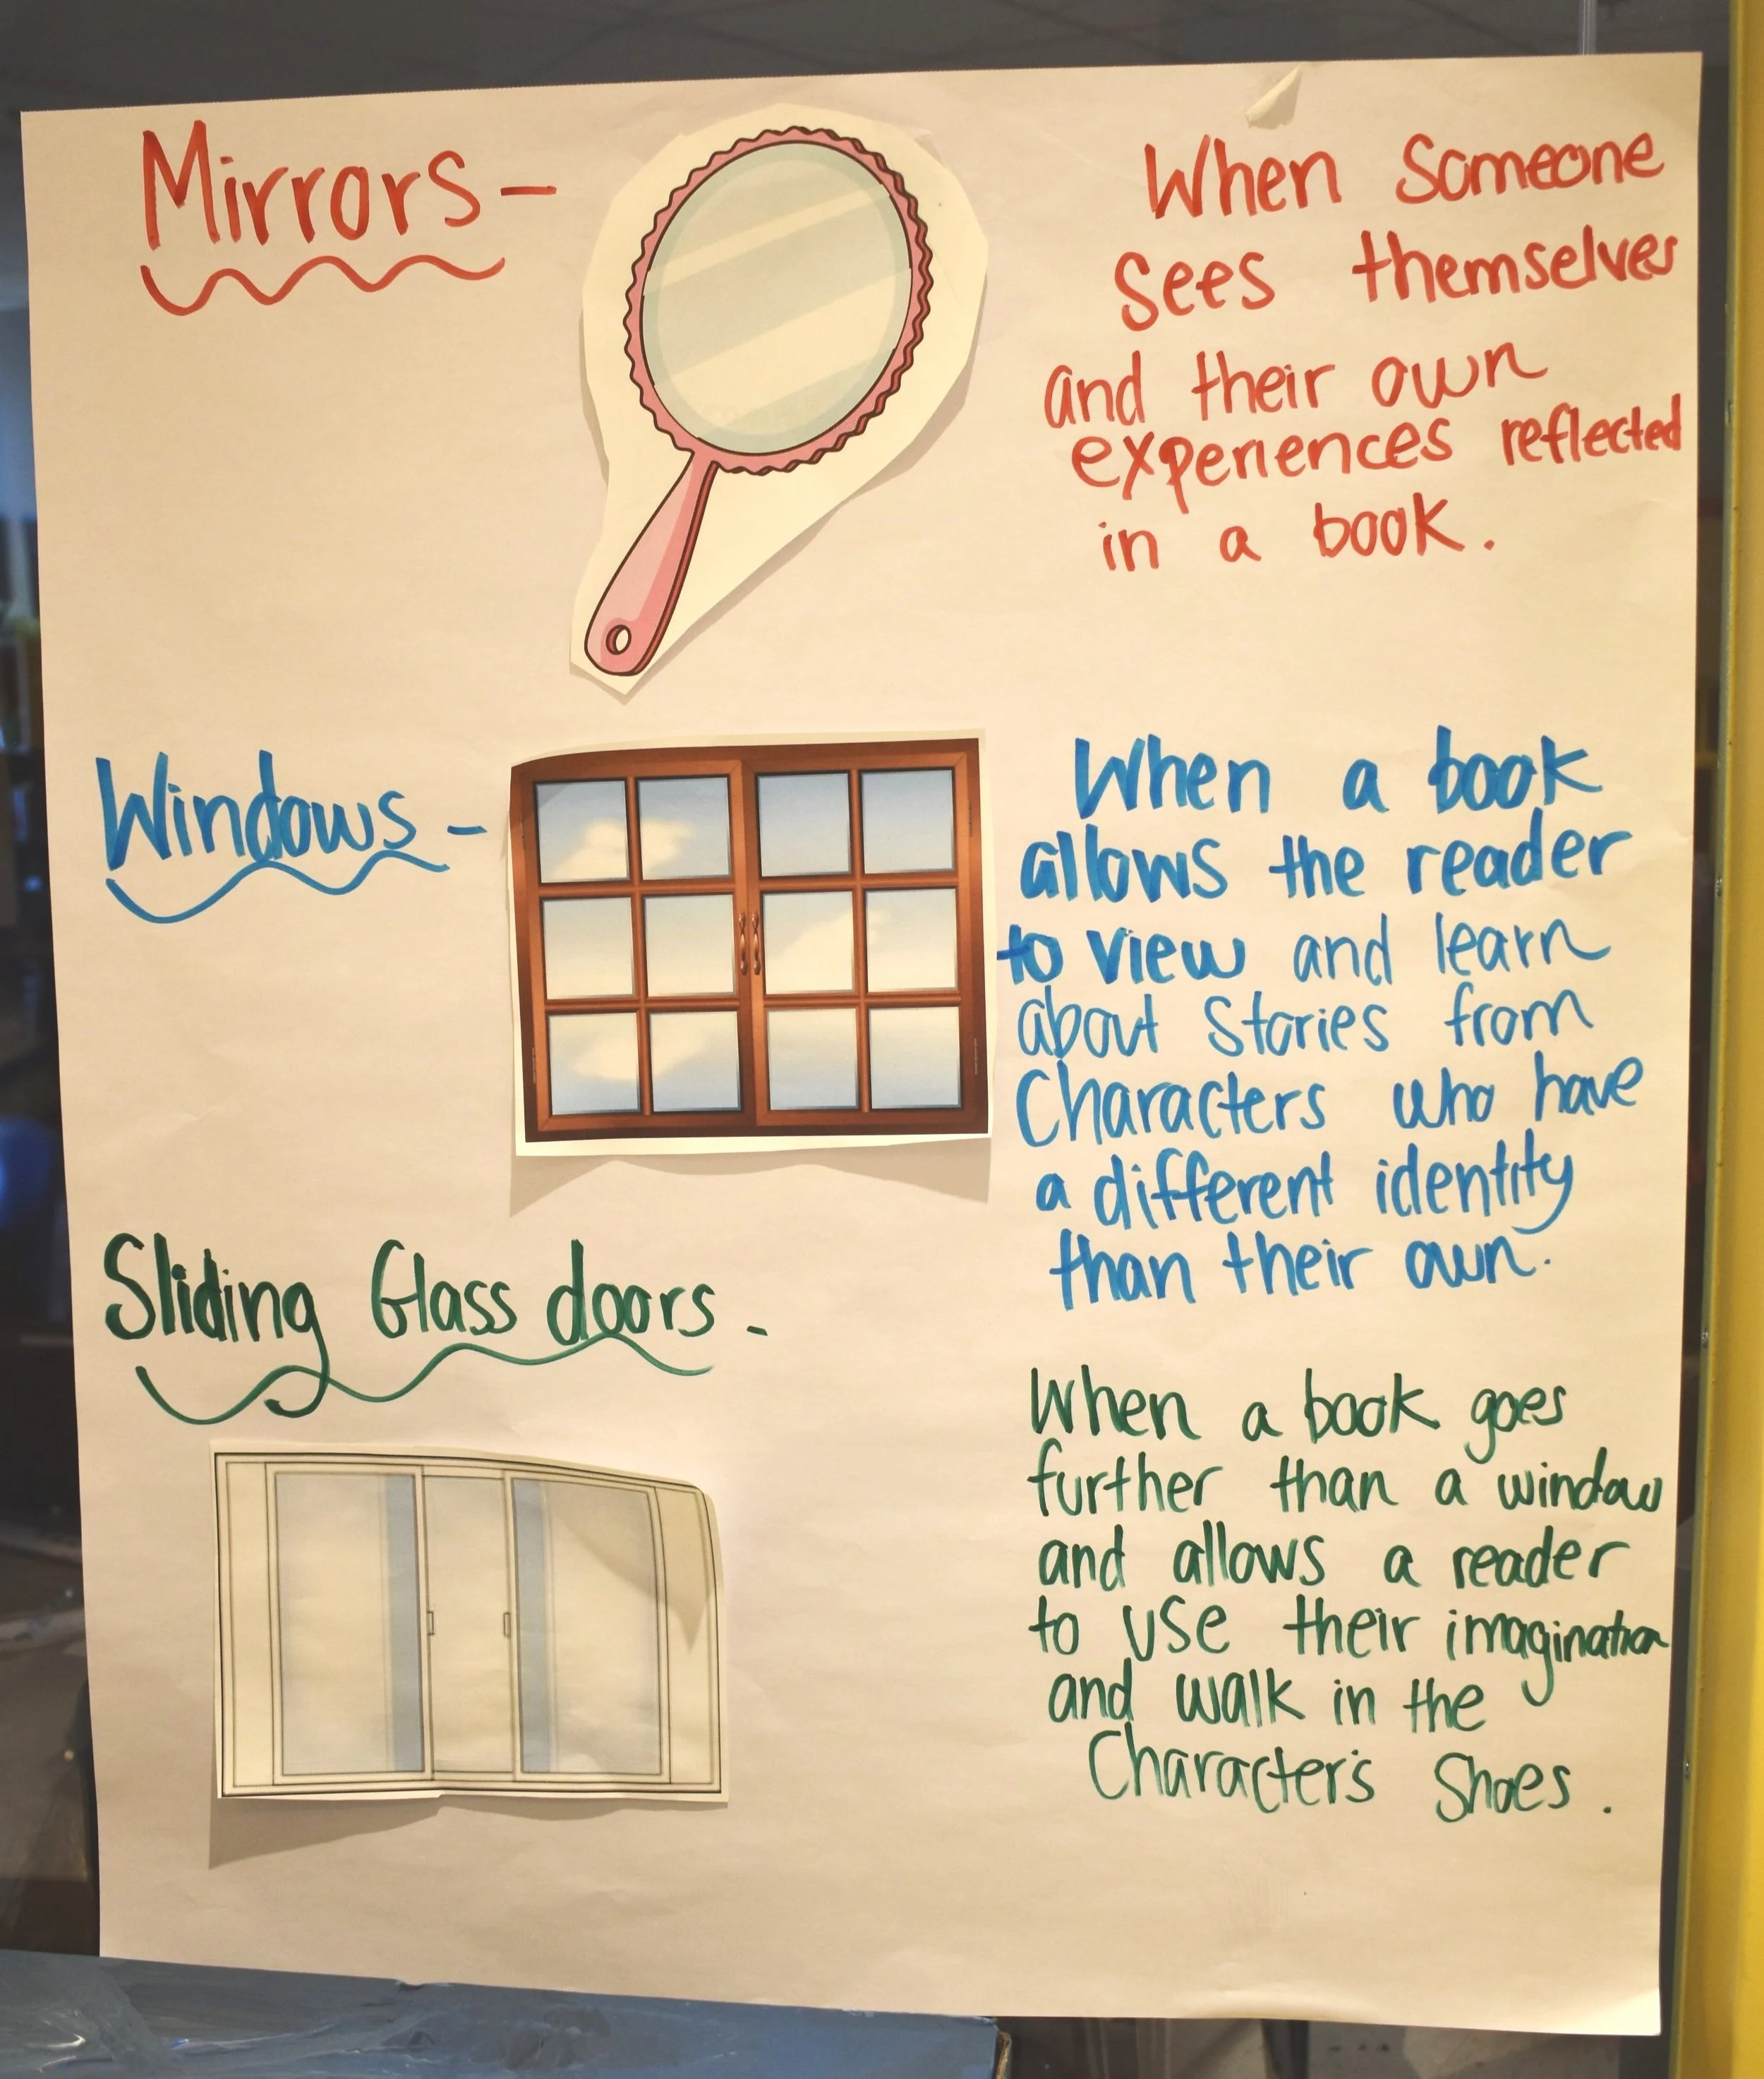 Mirrors -
When Someone
sees themselves
and their own
experiences reflected
in a book.
Windows -
When a book
allows the reader
to view and learn
about Stories from
Characters who have
a different identity
than their own.
Sliding Glass doors -
When a book goes
further than a window
and allows a reader
to use their imagination
and walk in the
Character's Shoes.